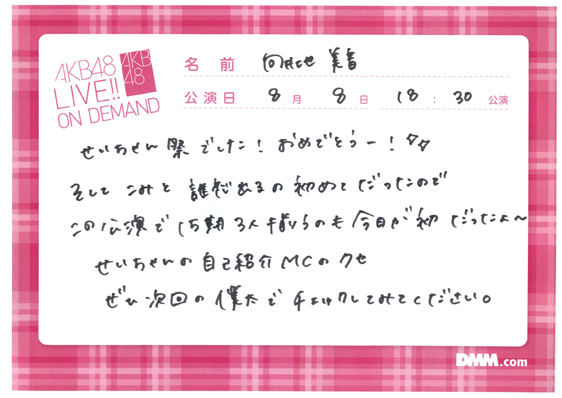 AKB48
LIVE!!
ON DEMAND
AKB
48
名前 向井地 美音
公演日 8月 8日 18:30公演
せいちゃん祭でした！おめでとうー！
そして こみと 誰かあるの初めてだったので
この公演で15期3人揃うのも今日が初だったよ〜
せいちゃんの自己紹介MCのクセ
ぜひ次回の僕太でチェックしてみてください。
DMM.com